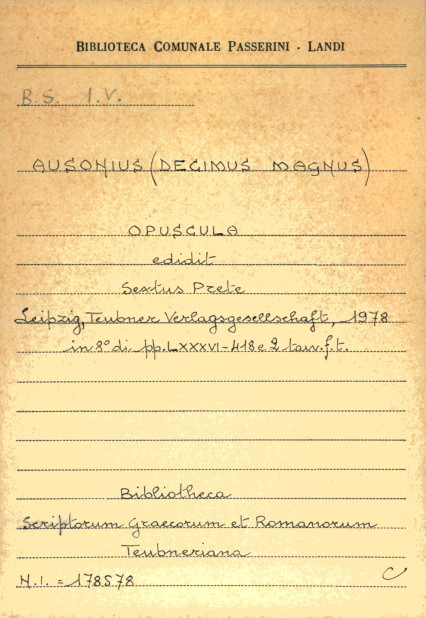 BIBLIOTECA COMUNALE PASSERINI - LANDI
B.S. I.V.
AUSONIUS (DECIMUS MAGNUS)
OPUSCULA
edidit
Sextus Prete
Leipzig, Teubner Verlagsgesellschaft, 1978
in 8° di pp. LXXXVI-418 e 2 tav. f.t.
Bibliotheca
Scriptorum Graecorum et Romanorum
Teubneriana
N.I. = 178578 C